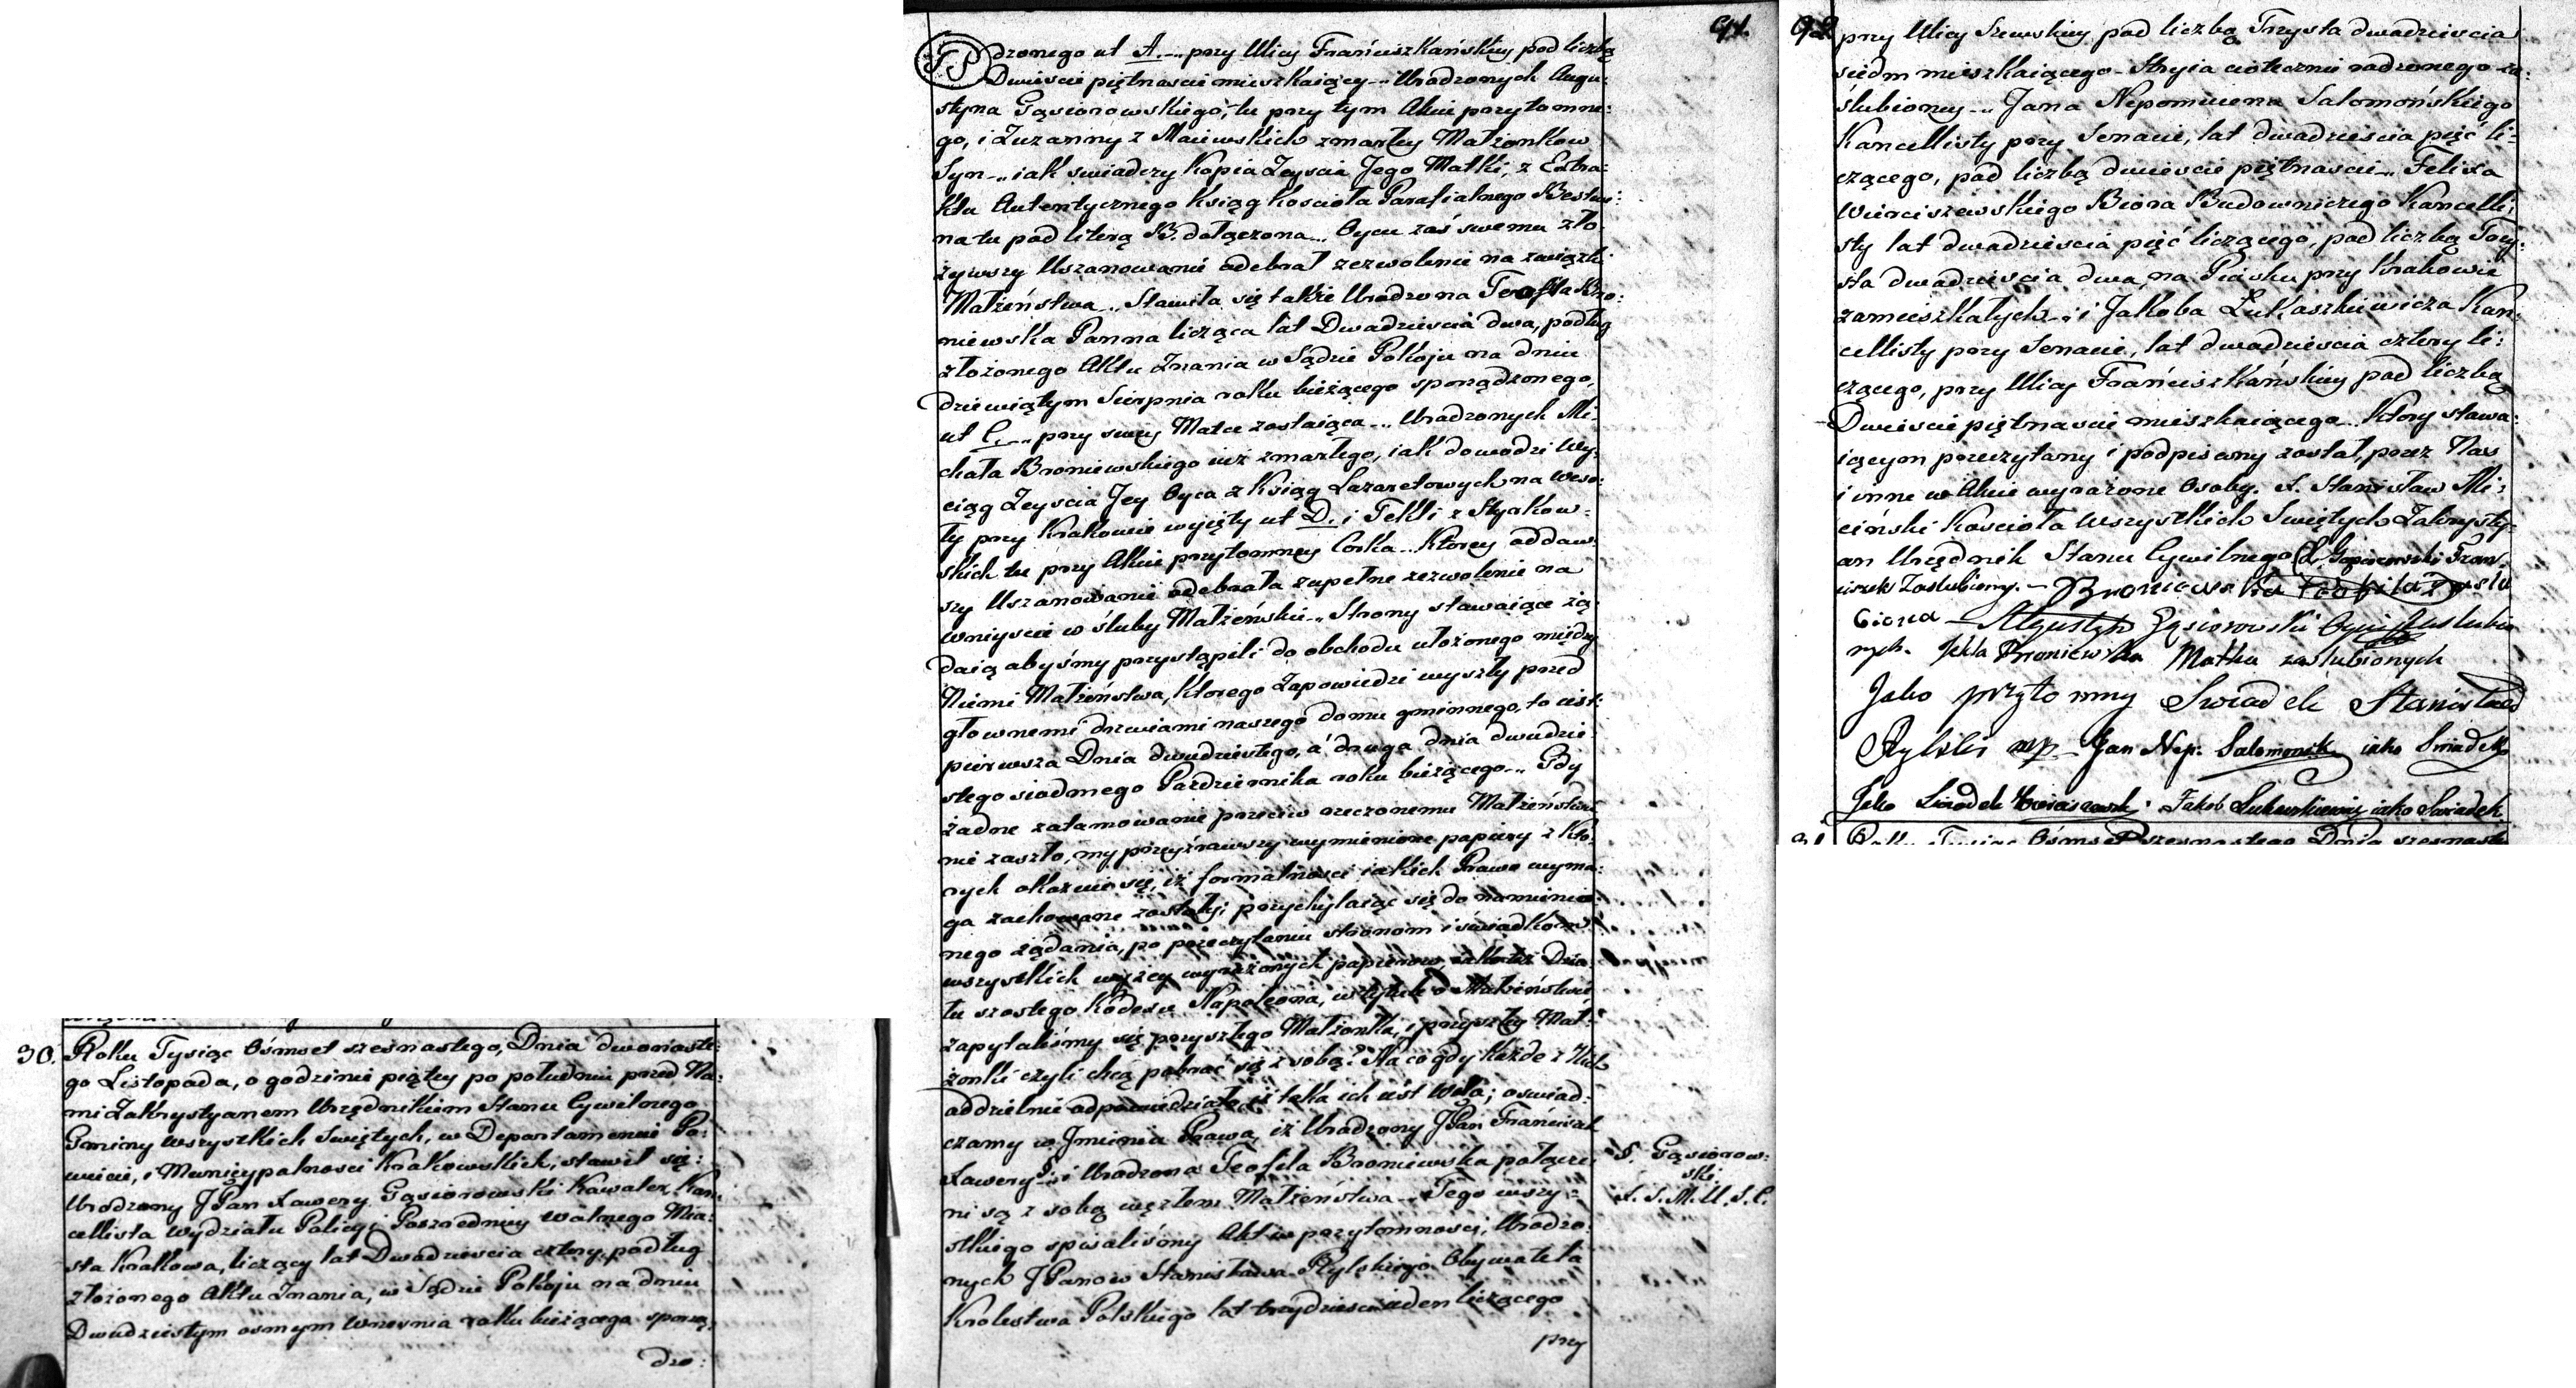 30.
Roku Tysiąc Ośmset szesnastego, Dnia dwonaste:
go Listopada, o godzinie piątey po południu przed Na:
mi Zakrystyanem Urzędnikiem Stanu Cywilnego
Gminy Wszystkich Swiętych, w Departamencie Po:
wiecie, i Municypalnosci Krakowskich, stawił się:
Urodzony JPan Xawery Gąsiorowski Kawaler, Kan:
cellista Wydziału Policyi Posredniey Wolnego Mia:
sta Krakowa, liczący lat Dwadziescia cztery, podług
złożonego Aktu Znania, w Sądzie Pokoju na dniu
Dwudziestym osmym Wrzesnia roku bieżącego sporzą:
dzo:
91.
dzonego ut A. _ przy Ulicy Franciszkańskiey pod liczbą
Dwiescie piętnascie mieszkaiący _ Urodzonych Augu:
styna Gąsiorowskiego, tu przy tym Akcie przytomne:
go, i Zuzanny z Maiewskich zmarłey Małżonkow
Syn _ iak swiadczy Kopia Zeyscia Jego Matki, z Extra:
ktu Autentycznego Ksiąg Koscioła Parafialnego
na tu pod literą B. dołączona _ Oycu zaś swemu zło:
żywszy Uszanowanie odebrał zezwolenie na związki
Małżeństwa _ Stawiła się także Urodzona Teofila Bro:
niewska Panna licząca lat Dwadziescia dwa, podług
złożonego Aktu Znania w Sądzie Pokoju na dniu
dziewiątym Sierpnia roku bieżącego sporządzonego,
ut C. _ przy swey Matce zostaiąca _ Urodzonych Mi:
chała Broniewskiego iuż zmarłego, iak dowodzi Wy:
ciąg Zeyscia Jey Oyca z Ksiąg Lazaretowych na Weso:
ły przy Krakowie wyięty ut D. i Tekli z
skich tu przy Akcie przytomney Corka _ Ktorey oddaw:
szy Uszanowanie odebrała zupełne zezwolenie na
wniyscie w śluby Małżeńskie _ Strony stawaiące żą:
daią abyśmy przystąpili do obchodu ułożonego między
Niemi Małżeństwa, ktorego Zapowiedzi wyszły przed
głownemi drzwiami naszego domu gminnego, to iest:
pierwsza Dnia dwudziestego, a druga dnia dwudzie:
stego siodmego Pazdziernika roku bieżącego _ Gdy
żadne zatamowanie przeciw rzeczonemu Małżeństwu
nie zaszło, my przeyźrawszy wymienione papiery z kto:
rych okazuie się, iż formalnosci iakich Prawo wyma:
ga zachowane zostały, przychylaiąc się do namienio:
nego żądania, po przeczytaniu stronom i świadkom
wszystkich wyżey wyrażonych papierow, iakoteż Dzia:
łu szostego Kodexu Napoleona, w tytule o Małżeństwie
zapytaliśmy się przyszłego Małżonka, i przyszłey Mał:
żonki czyli chcą pobrać się z sobą? Na co gdy Każde z Nich
oddzielnie odpowiedziało, iż taka ich iest Wola; oswiad:
czamy w Jmieniu Prawa, iż Urodzony JPan Franciszek
Xawery §. i Urodzona Teofila Broniewska połącze:
ni są z sobą węzłem Małżeństwa _ Tego wszy:
stkiego spisaliśmy Akt w przytomnosci, Urodzo:
nych JPanow Stanisława Rylskiego Obywatela
Krolestwa Polskiego lat trzydziesci ieden liczącego
przy
§. Gąsiorow:
ski.
X. S. M. U. S. C.
92
przy Ulicy Szewskiey pod liczbą Trzysta dwadziescia
siedm mieszkaiącego _ Stryia ciotecznie rodzonego za:
ślubioney _ Jana Nepomucena Salomońskiego
Kancellisty przy Senacie, lat dwadziescia pięć li:
czącego, pod liczbą dwiescie piętnascie _ Felixa
Wierciszewskiego Biora Budowniczego Kancelli:
sty lat dwadziescia pięć liczącego, pod liczbą Trzy:
sta dwadziescia dwa, na Piasku przy Krakowie
zamieszkałych _ i Jakoba Łukaszkiewicza Kan:
cellisty przy Senacie, lat dwadziescia cztery li:
czącego, przy Ulicy Franciszkańskiey pod liczbą
Dwiescie piętnascie mieszkaiącego _ Ktory stawa:
iącym przeczytany i podpisany został, przez Nas
i inne w Akcie wyrażone Osoby. X. Stanisław Mi:
ciński Kościoła Wszystkich Swiętych Zakrysty:
an Urzędnik Stanu Cywilnego X. Gąsiorowski Fran:
ciszek Zaślubiony. _ Broniewska Teofila Zaślu
biona _ Agustyn Gąsiorowski Oyciec Zaślubio
nych. Tekla Broniewska Matka zaślubionych
Jako przytomny Swiadek Stanisław
Rylski mp _ Jan Nep. Salomonski iako Swiadek
Jako Swiadek Wierciszewski. Jakob Łukaszkiewicz iako Swiadek
31. Roku Tysiąc Ośmset szesnastego Dnia szesnaste